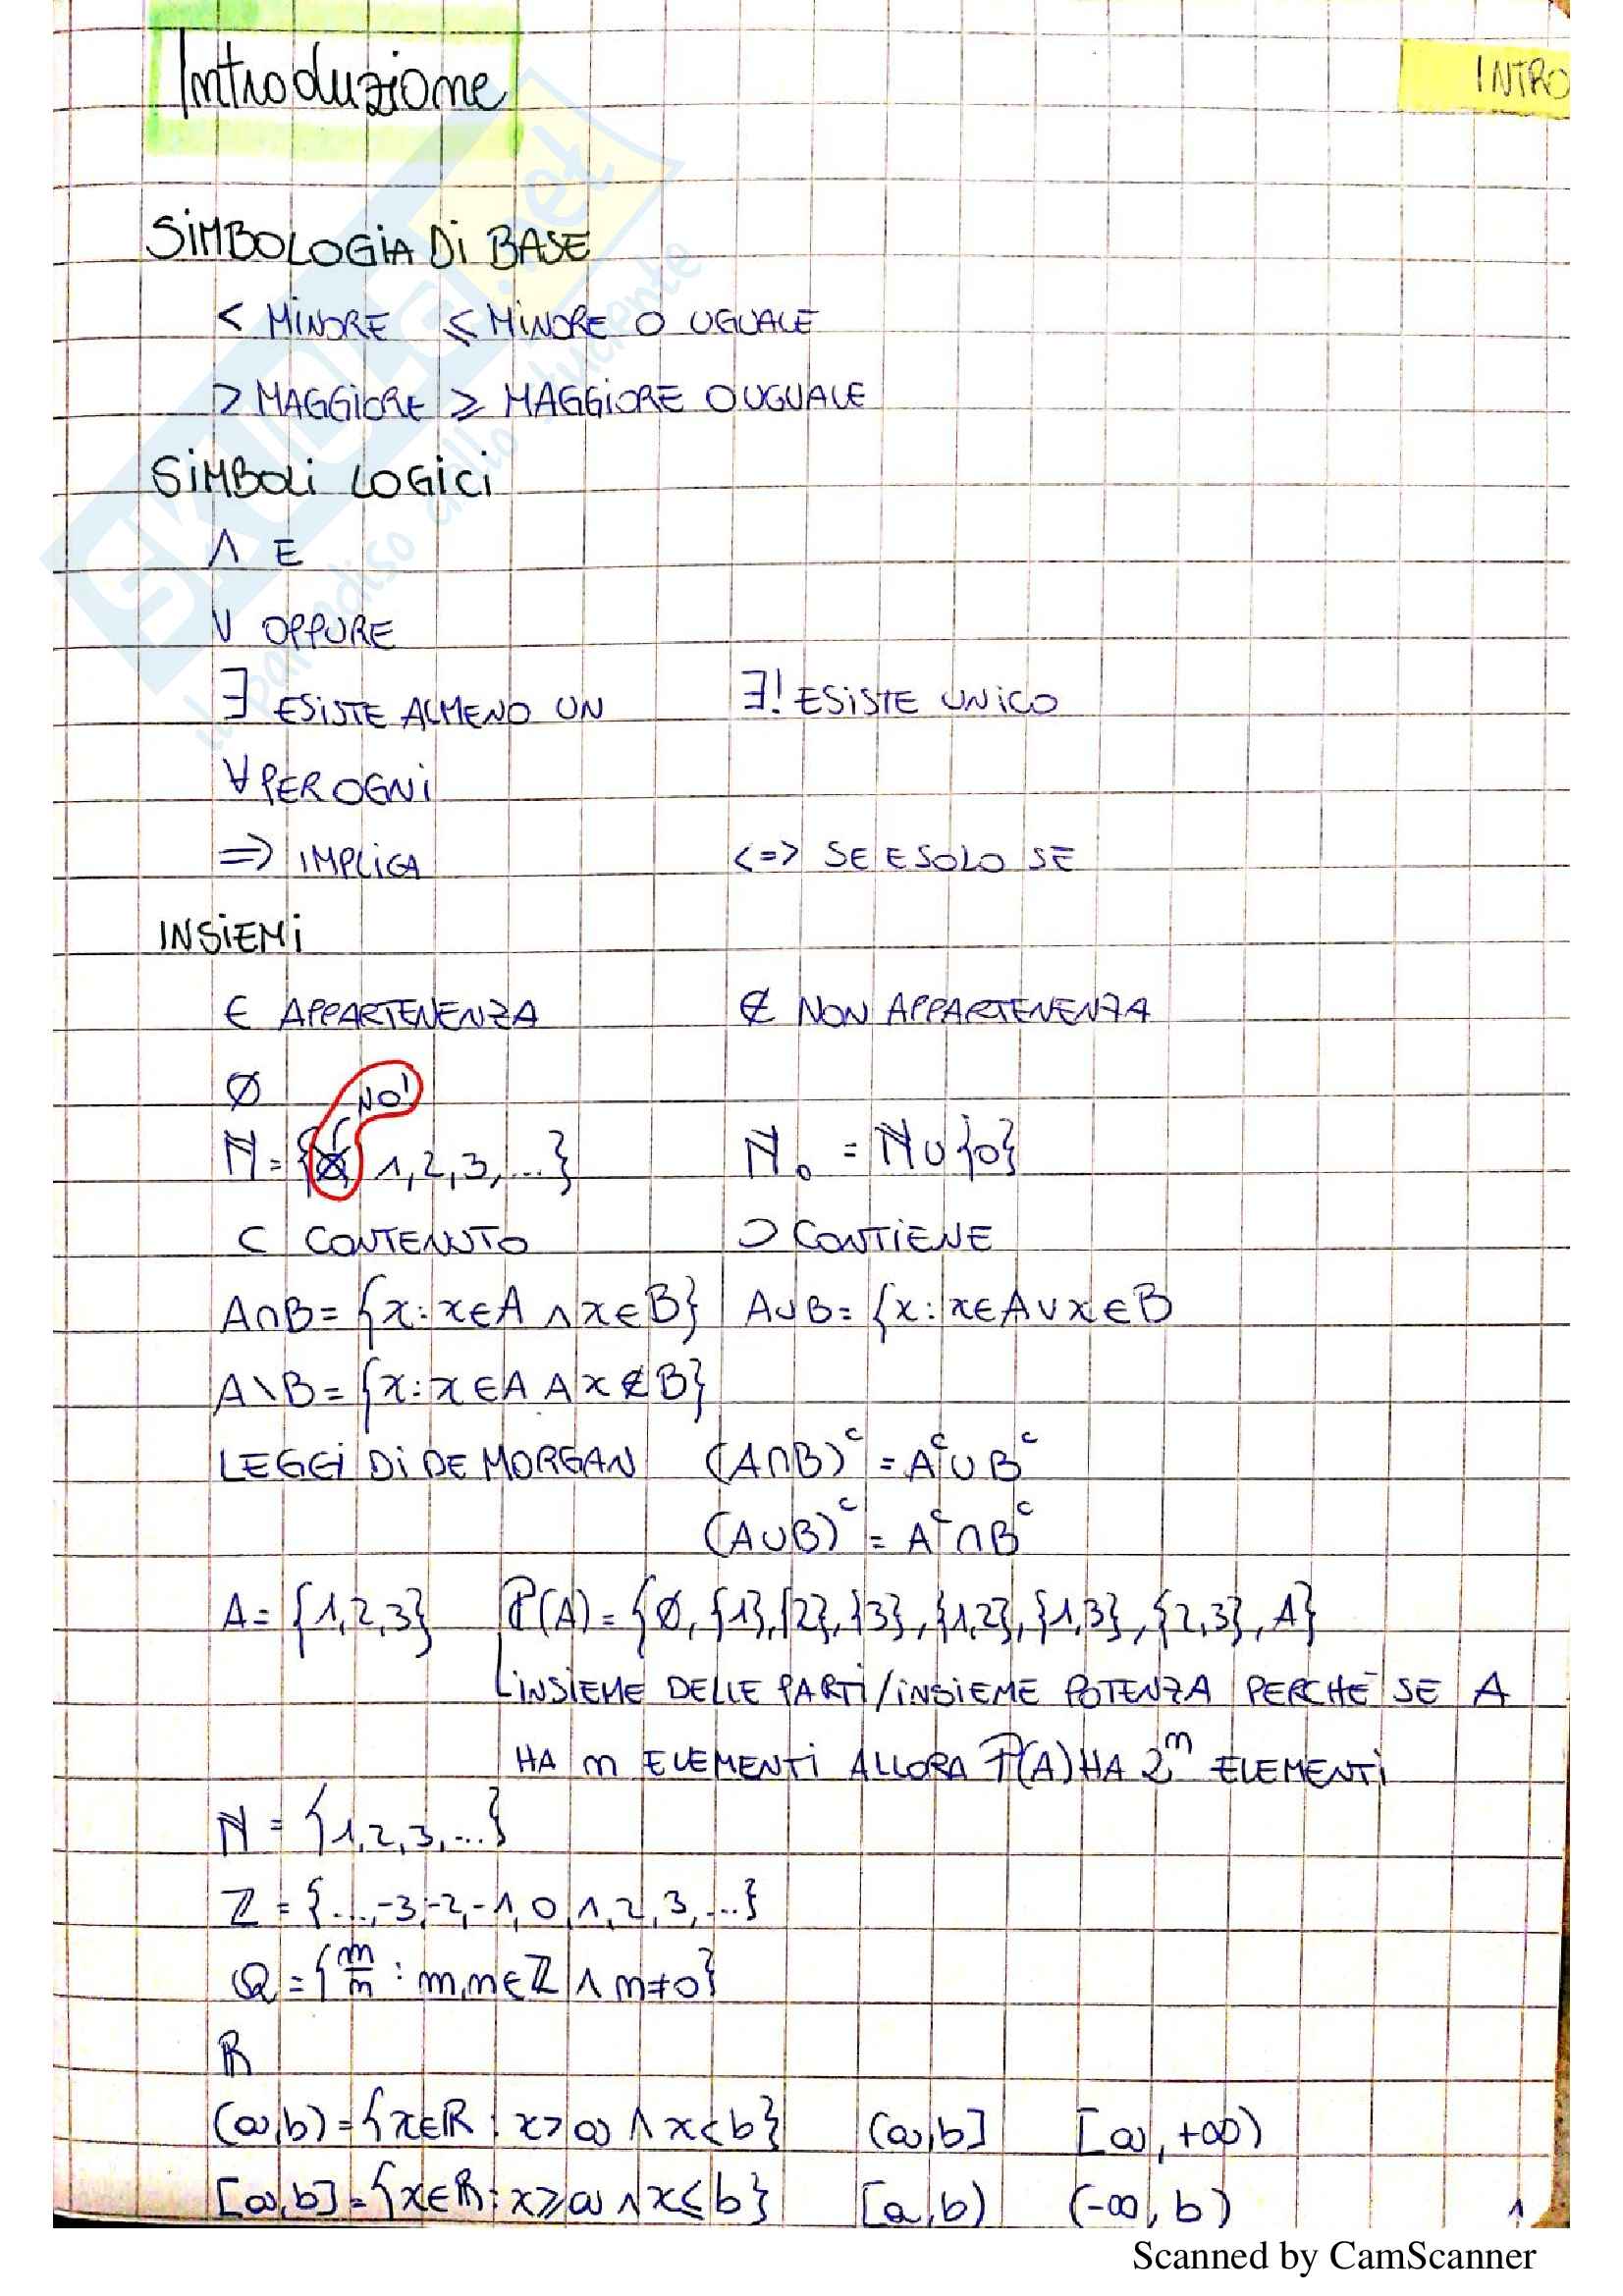 Introduzione
INTRO
SIMBOLOGIA DI BASE
< MINORE ⩽ MINORE O UGUALE
> MAGGIORE ⩾ MAGGIORE O UGUALE
SIMBOLI LOGICI
∧ E
∨ OPPURE
∃ ESISTE ALMENO UN ∃! ESISTE UNICO
∀ PER OGNI
=> IMPLICA <=> SE E SOLO SE
INSIEMI
∈ APPARTENENZA ∉ NON APPARTENENZA
∅
NO!
ℕ = {0, 1, 2, 3, ...} ℕ₀ = ℕ ∪ {0}
⊂ CONTENUTO ⊃ CONTIENE
A∩B = {x : x∈A ∧ x∈B} A∪B = {x : x∈A ∨ x∈B
A\B = {x : x∈A ∧ x∉B}
LEGGI DI DE MORGAN (A∩B)ᶜ = Aᶜ∪Bᶜ
(A∪B)ᶜ = Aᶜ∩Bᶜ
A = {1,2,3} P(A) = {∅, {1}, {2}, {3}, {1,2}, {1,3}, {2,3}, A}
INSIEME DELLE PARTI/INSIEME POTENZA PERCHÉ SE A
HA n ELEMENTI ALLORA P(A) HA 2ⁿ ELEMENTI
ℕ = {1, 2, 3, ...}
ℤ = {..., -3, -2, -1, 0, 1, 2, 3, ...}
ℚ = {m/n : m,n∈ℤ ∧ n≠0}
ℝ
(a,b) = {x∈ℝ : x>a ∧ x<b} (a,b] [a,+∞)
[a,b] = {x∈ℝ : x⩾a ∧ x⩽b} [a,b) (-∞,b)
1
SKUOLA.net
il paradiso dello studente
Scanned by CamScanner